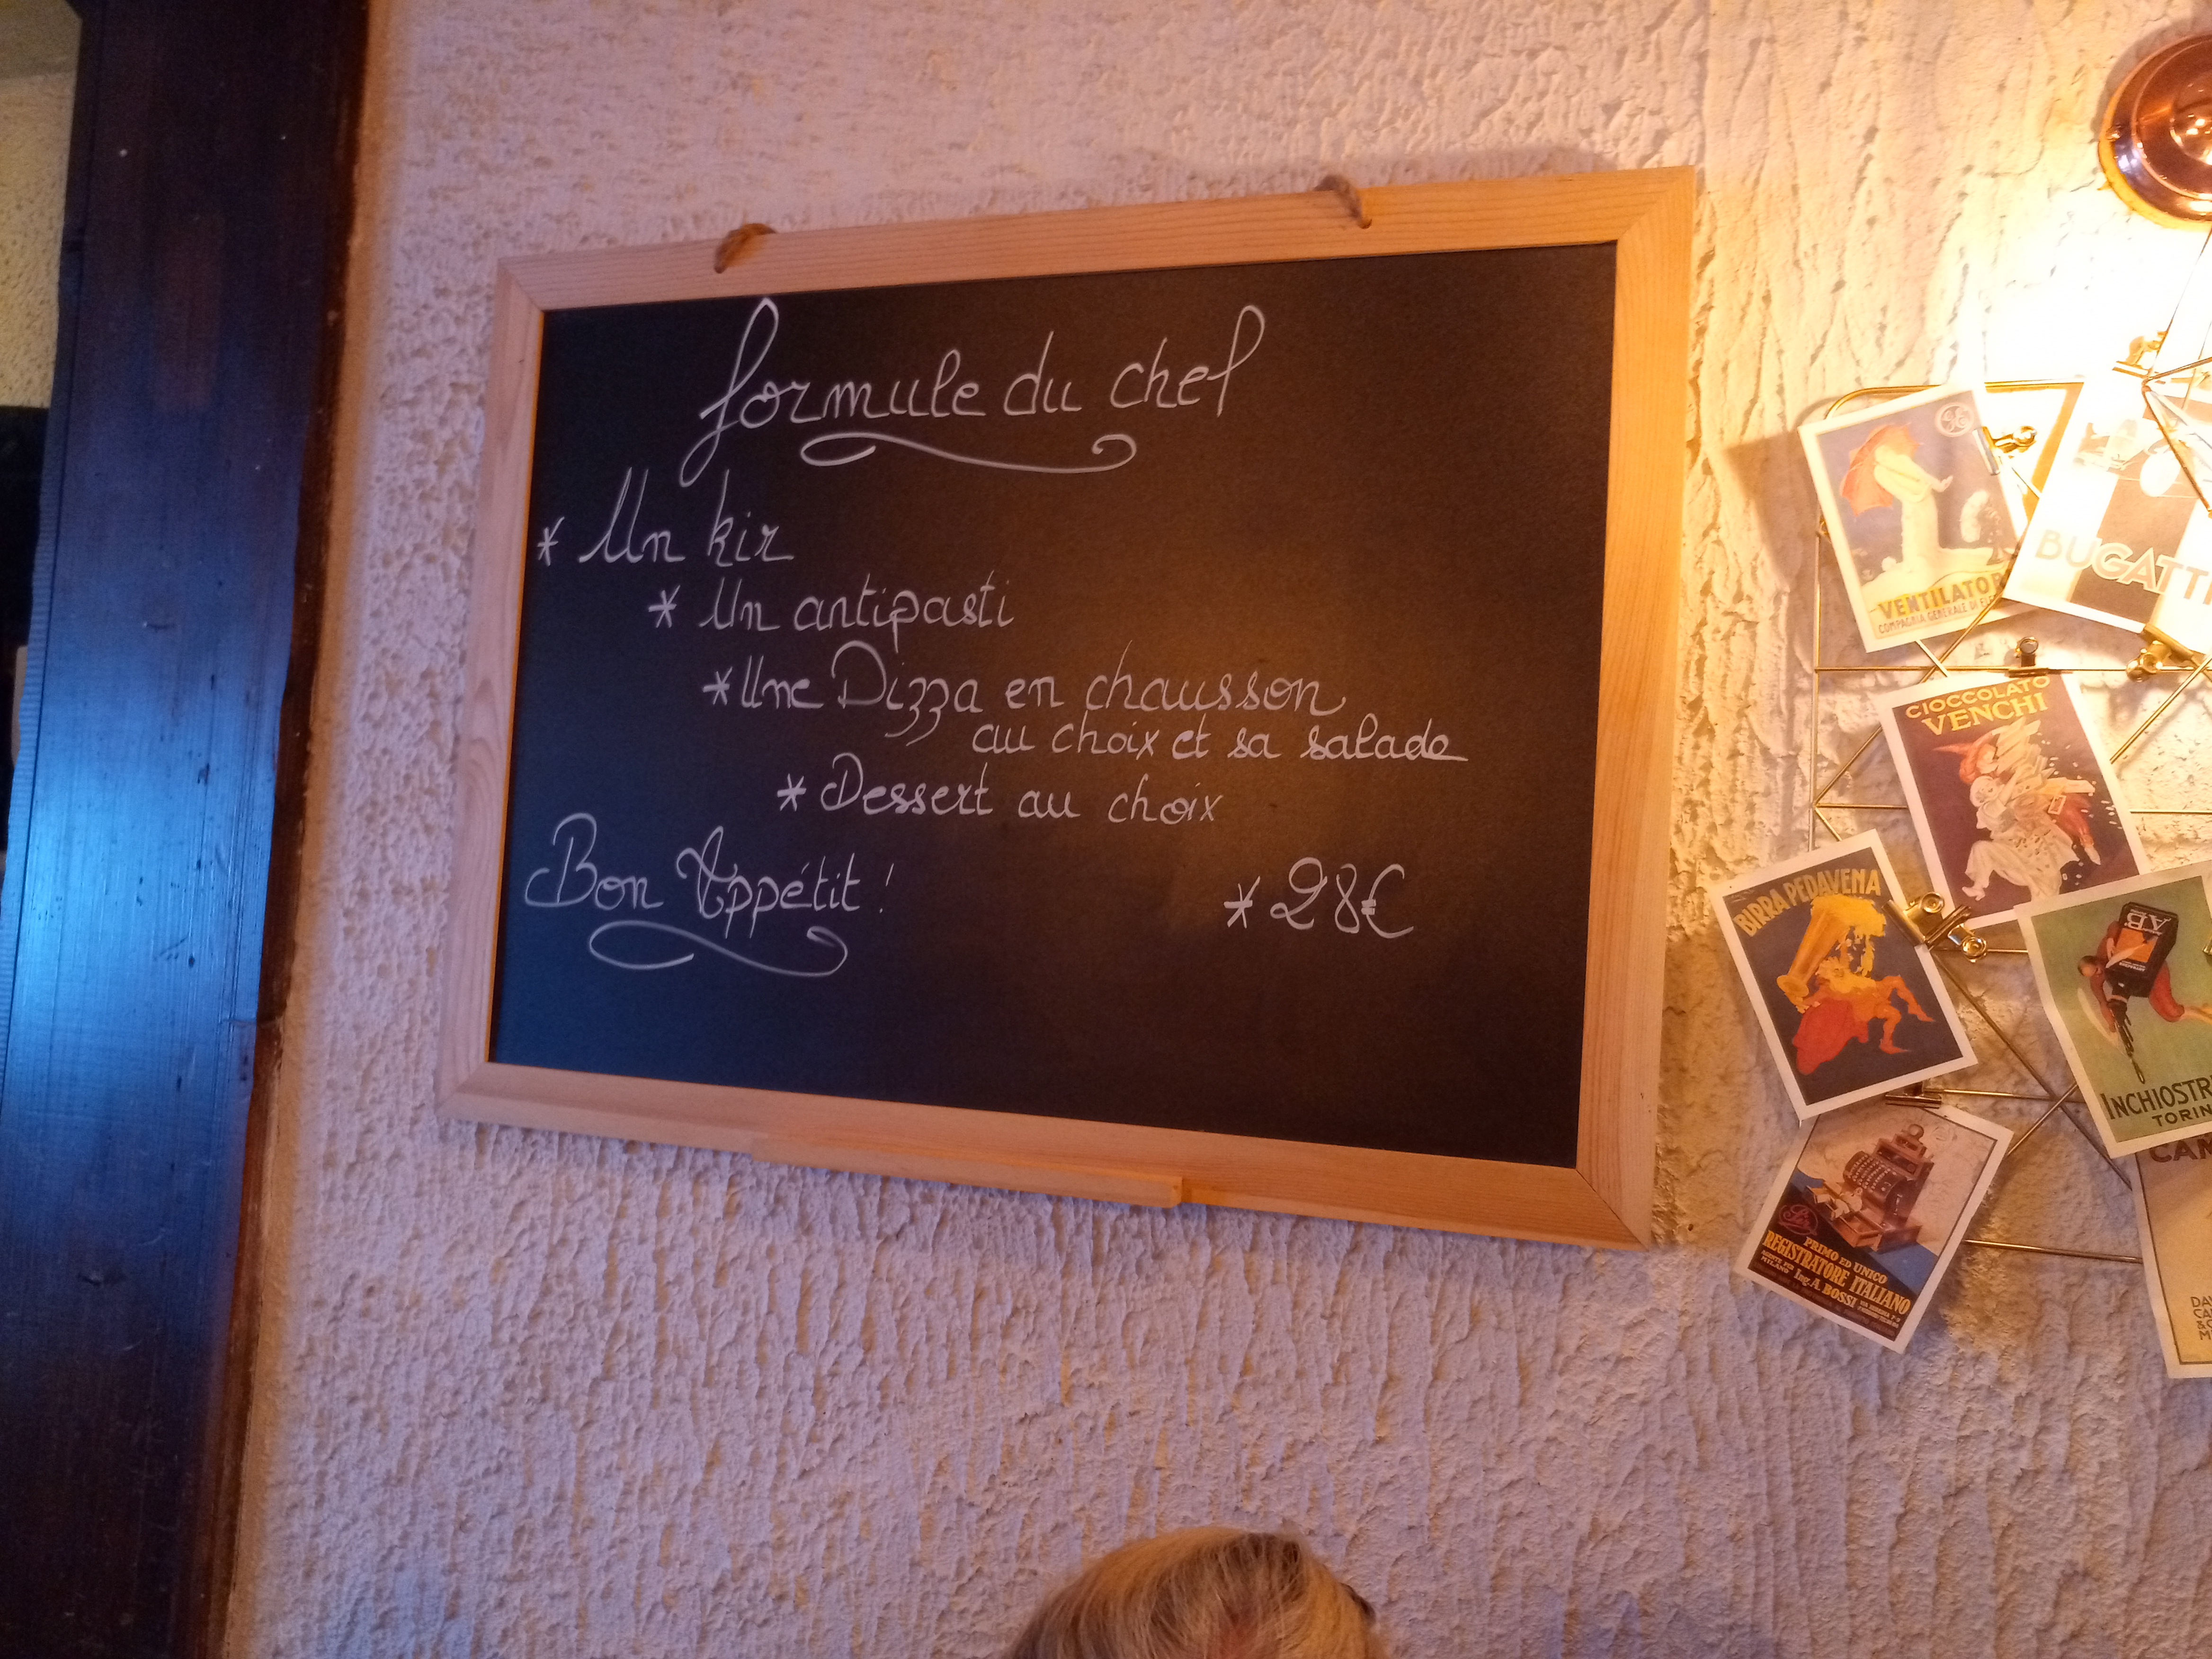 formule du chef
* Un kir
* Un antipasti
* Une Pizza en chausson
au choix et sa salade
* Dessert au choix
Bon Appétit !
* 28€
VENTILATOR
COMPAGNIA GENERALE DI
BUGATTI
CIOCCOLATO
VENCHI
BIRRA PEDAVENA
AB
INCHIOSTR
TORIN
CAM
PRIMO ED UNICO
REGISTRATORE ITALIANO
MILANO Ing. A. BOSSI